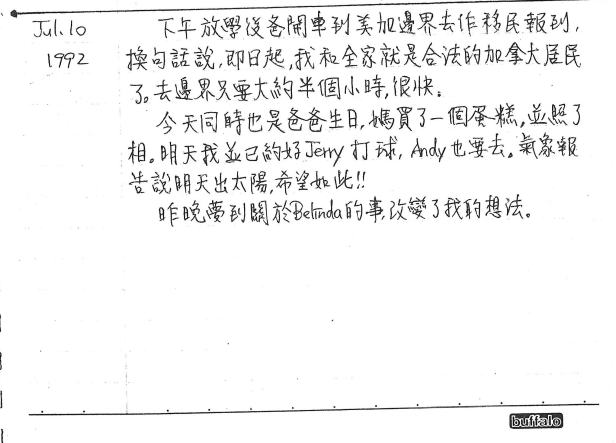 Jul.10
1992
下午放學後爸開車到美加邊界去作移民報到,
換句話說,即日起,我和全家就是合法的加拿大居民
了。去邊界只要大約半個小時,很快。
今天同時也是爸爸生日,媽買了一個蛋糕,並照了
相。明天我並已約好Jerry打球, Andy也要去。氣象報
告說明天出太陽,希望如此!!
昨晚夢到關於Belinda的事,改變了我的想法。
buffalo